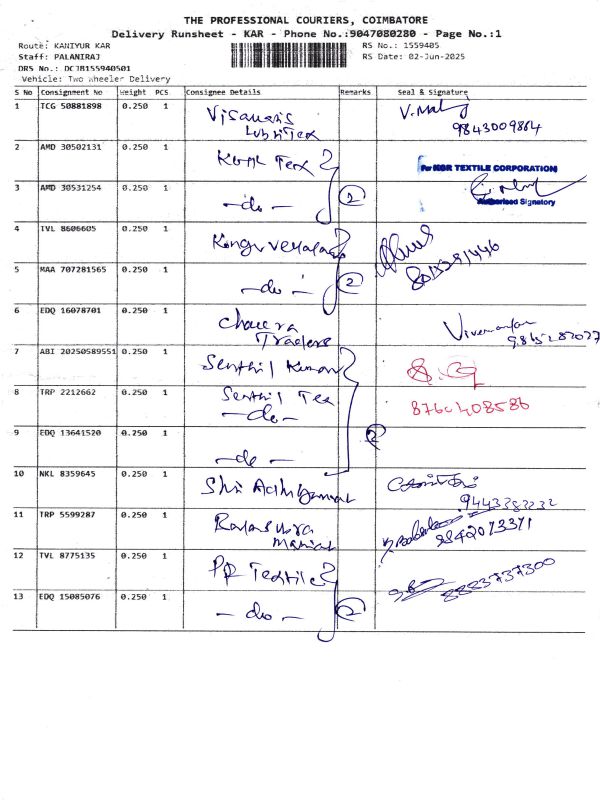 THE PROFESSIONAL COURIERS, COIMBATORE
Delivery Runsheet - KAR - Phone No.:9047080280 - Page No.:1
Route: KANIYUR KAR RS No.: 1559405
Staff: PALANIRAJ RS Date: 02-Jun-2025
DRS No.: DCJB155940501
Vehicle: Two Wheeler Delivery
S No Consignment No Weight PCS Consignee Details Remarks Seal & Signature
1 TCG 50881898 0.250 1
9843009864
2 AMD 30502131 0.250 1 Tex For KGR TEXTILE CORPORATION
3 AMD 30531254 0.250 1 -do- 2 Authorised Signatory
4 TVL 8606605 0.250 1
5 MAA 707281565 0.250 1 -do- 2
6 EDQ 16078701 0.250 1
Traders
7 ABI 20250589551 0.250 1 Senthil Kumar
8 TRP 2212662 0.250 1 Senthil Tex 8760408586
-do-
9 EDQ 13641520 0.250 1 -do- 2
10 NKL 8359645 0.250 1 Shri
11 TRP 5599287 0.250 1 9842073371
12 TVL 8775135 0.250 1 PP Textile 8883737300
13 EDQ 15085076 0.250 1 -do- 2